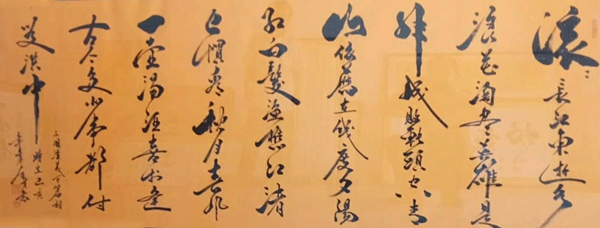 滚滚長江東逝水
浪花淘尽英雄是
非成敗轉頭空青
山依舊在幾度夕陽
紅白髮漁樵江渚
上慣看秋月春風
一壶濁酒喜相逢
古今多少事都付
笑談中
己亥